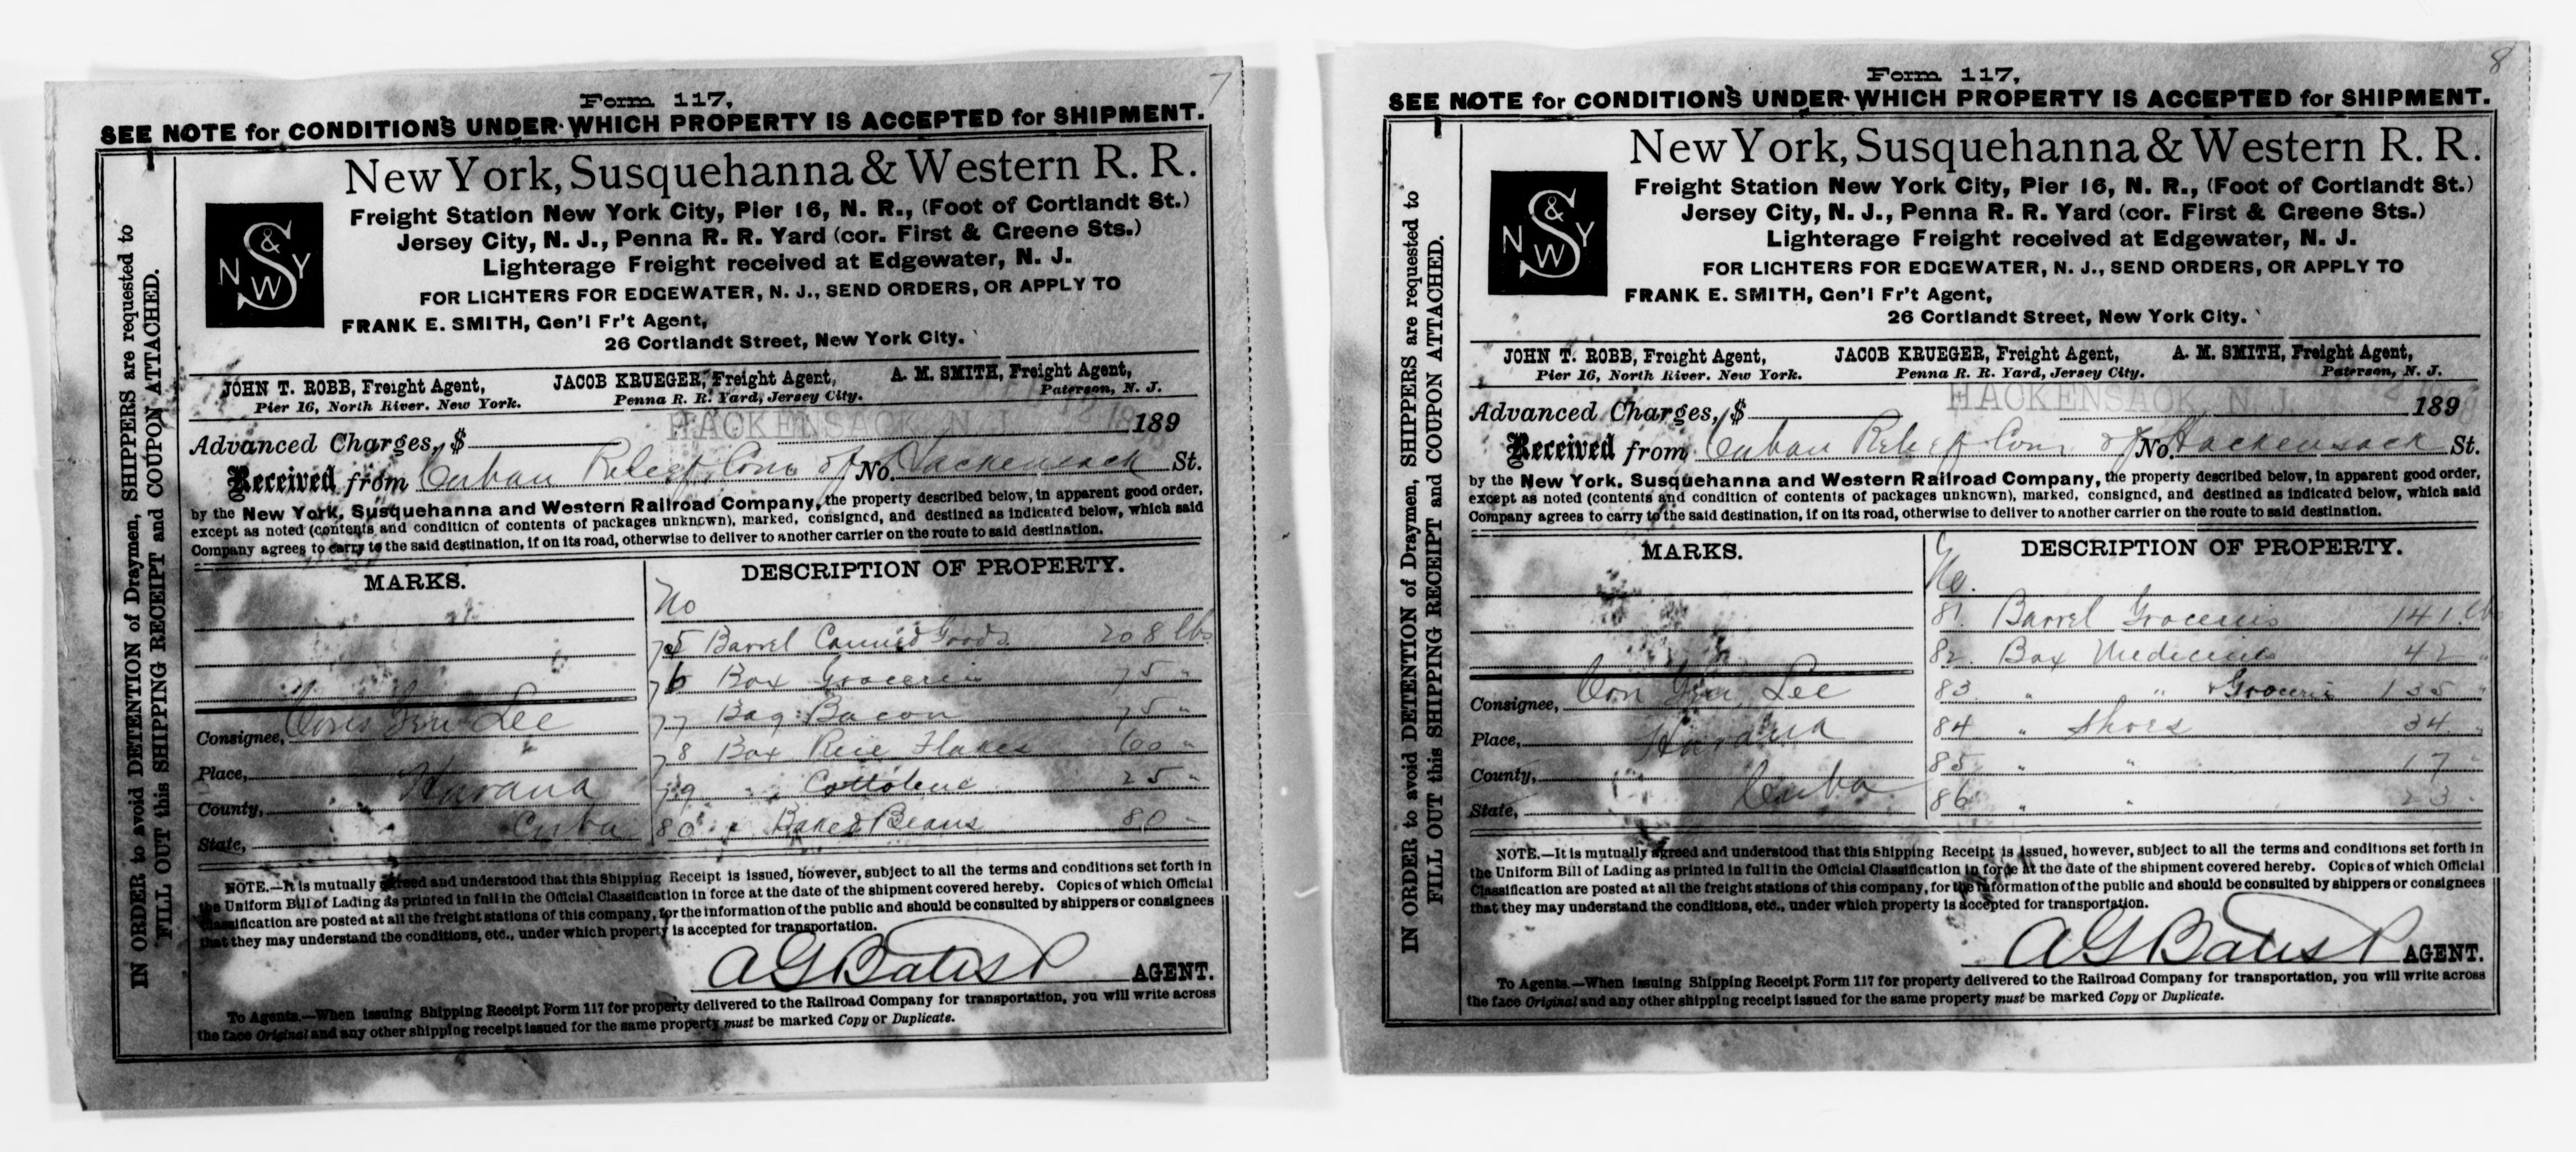 7
Form 117,
SEE NOTE for CONDITIONS UNDER WHICH PROPERTY IS ACCEPTED for SHIPMENT.
IN ORDER to avoid DETENTION of Draymen, SHIPPERS are requested to
FILL OUT this SHIPPING RECEIPT and COUPON ATTACHED.
N S & W Y
New York, Susquehanna & Western R. R.
Freight Station New York City, Pier 16, N. R., (Foot of Cortlandt St.)
Jersey City, N. J., Penna R. R. Yard (cor. First & Greene Sts.)
Lighterage Freight received at Edgewater, N. J.
FOR LIGHTERS FOR EDGEWATER, N. J., SEND ORDERS, OR APPLY TO
FRANK E. SMITH, Gen'l Fr't Agent,
26 Cortlandt Street, New York City.
JOHN T. ROBB, Freight Agent, JACOB KRUEGER, Freight Agent, A. M. SMITH, Freight Agent,
Pier 16, North River. New York. Penna R. R. Yard, Jersey City. Paterson, N. J.
HACKENSACK N. J.
Advanced Charges, $ 189
Received from Cuban Relief Com of No. Hackensack St.
by the New York, Susquehanna and Western Railroad Company, the property described below, in apparent good order,
except as noted (contents and condition of contents of packages unknown), marked, consigned, and destined as indicated below, which said
Company agrees to carry to the said destination, if on its road, otherwise to deliver to another carrier on the route to said destination.
MARKS. DESCRIPTION OF PROPERTY.
No
75 Barrel Canned Goods 208 lbs
76 Box Groceries 75 "
77 Bag Bacon 75 "
Consignee, Cons Gen Lee
78 Box Rice Flakes 60 "
Place,
79 " Cottolene 25 "
Havana
County,
80 " Baked Beans 80 "
Cuba
State,
NOTE.—It is mutually agreed and understood that this Shipping Receipt is issued, however, subject to all the terms and conditions set forth in
the Uniform Bill of Lading as printed in full in the Official Classification in force at the date of the shipment covered hereby. Copies of which Official
Classification are posted at all the freight stations of this company, for the information of the public and should be consulted by shippers or consignees
that they may understand the conditions, etc., under which property is accepted for transportation.
AGENT.
To Agents.—When issuing Shipping Receipt Form 117 for property delivered to the Railroad Company for transportation, you will write across
the face Original and any other shipping receipt issued for the same property must be marked Copy or Duplicate.
8
Form 117,
SEE NOTE for CONDITIONS UNDER WHICH PROPERTY IS ACCEPTED for SHIPMENT.
IN ORDER to avoid DETENTION of Draymen, SHIPPERS are requested to
FILL OUT this SHIPPING RECEIPT and COUPON ATTACHED.
N S & W Y
New York, Susquehanna & Western R. R.
Freight Station New York City, Pier 16, N. R., (Foot of Cortlandt St.)
Jersey City, N. J., Penna R. R. Yard (cor. First & Greene Sts.)
Lighterage Freight received at Edgewater, N. J.
FOR LIGHTERS FOR EDGEWATER, N. J., SEND ORDERS, OR APPLY TO
FRANK E. SMITH, Gen'l Fr't Agent,
26 Cortlandt Street, New York City.
JOHN T. ROBB, Freight Agent, JACOB KRUEGER, Freight Agent, A. M. SMITH, Freight Agent,
Pier 16, North River. New York. Penna R. R. Yard, Jersey City. Paterson, N. J.
HACKENSACK N. J.
Advanced Charges, $ 189
Received from Cuban Relief Com of No. Hackensack St.
by the New York, Susquehanna and Western Railroad Company, the property described below, in apparent good order,
except as noted (contents and condition of contents of packages unknown), marked, consigned, and destined as indicated below, which said
Company agrees to carry to the said destination, if on its road, otherwise to deliver to another carrier on the route to said destination.
MARKS. DESCRIPTION OF PROPERTY.
No.
81. Barrel Groceries 141 lbs
82. Box Medicines 42 "
Consignee, Con Gen Lee
83 " " & Groceries 135 "
Place, Havana
84 " Shoes 34 "
County,
85 " " 17 "
Cuba
State,
86 " " 23 "
NOTE.—It is mutually agreed and understood that this Shipping Receipt is issued, however, subject to all the terms and conditions set forth in
the Uniform Bill of Lading as printed in full in the Official Classification in force at the date of the shipment covered hereby. Copies of which Official
Classification are posted at all the freight stations of this company, for the information of the public and should be consulted by shippers or consignees
that they may understand the conditions, etc., under which property is accepted for transportation.
AGENT.
To Agents.—When issuing Shipping Receipt Form 117 for property delivered to the Railroad Company for transportation, you will write across
the face Original and any other shipping receipt issued for the same property must be marked Copy or Duplicate.